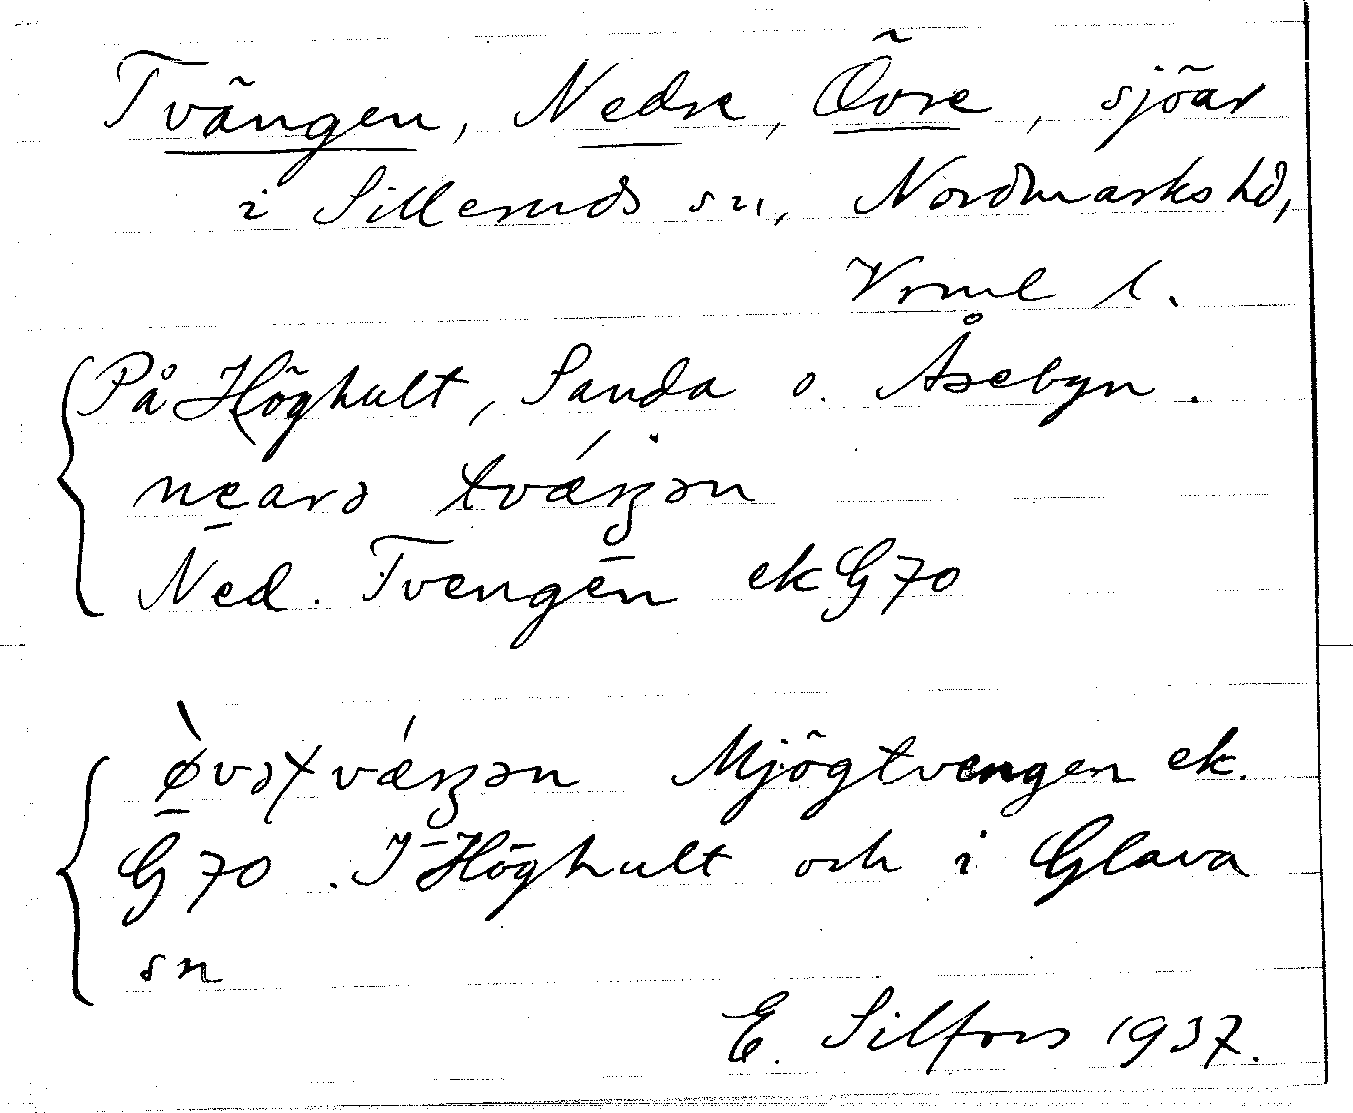 Tvängen, Nedre, Övre, sjöar
i Silleruds sn, Nordmarks hd,
Vrml l.
På Höghult, Sanda o. Åsebyn.
nearə tvǽŋən
Ned. Tvengen ek G 70
ø̀vətvǽŋən Mjögtvengen ek.
G 70. I Höghult och i Glava
sn
E. Silfors 1937.